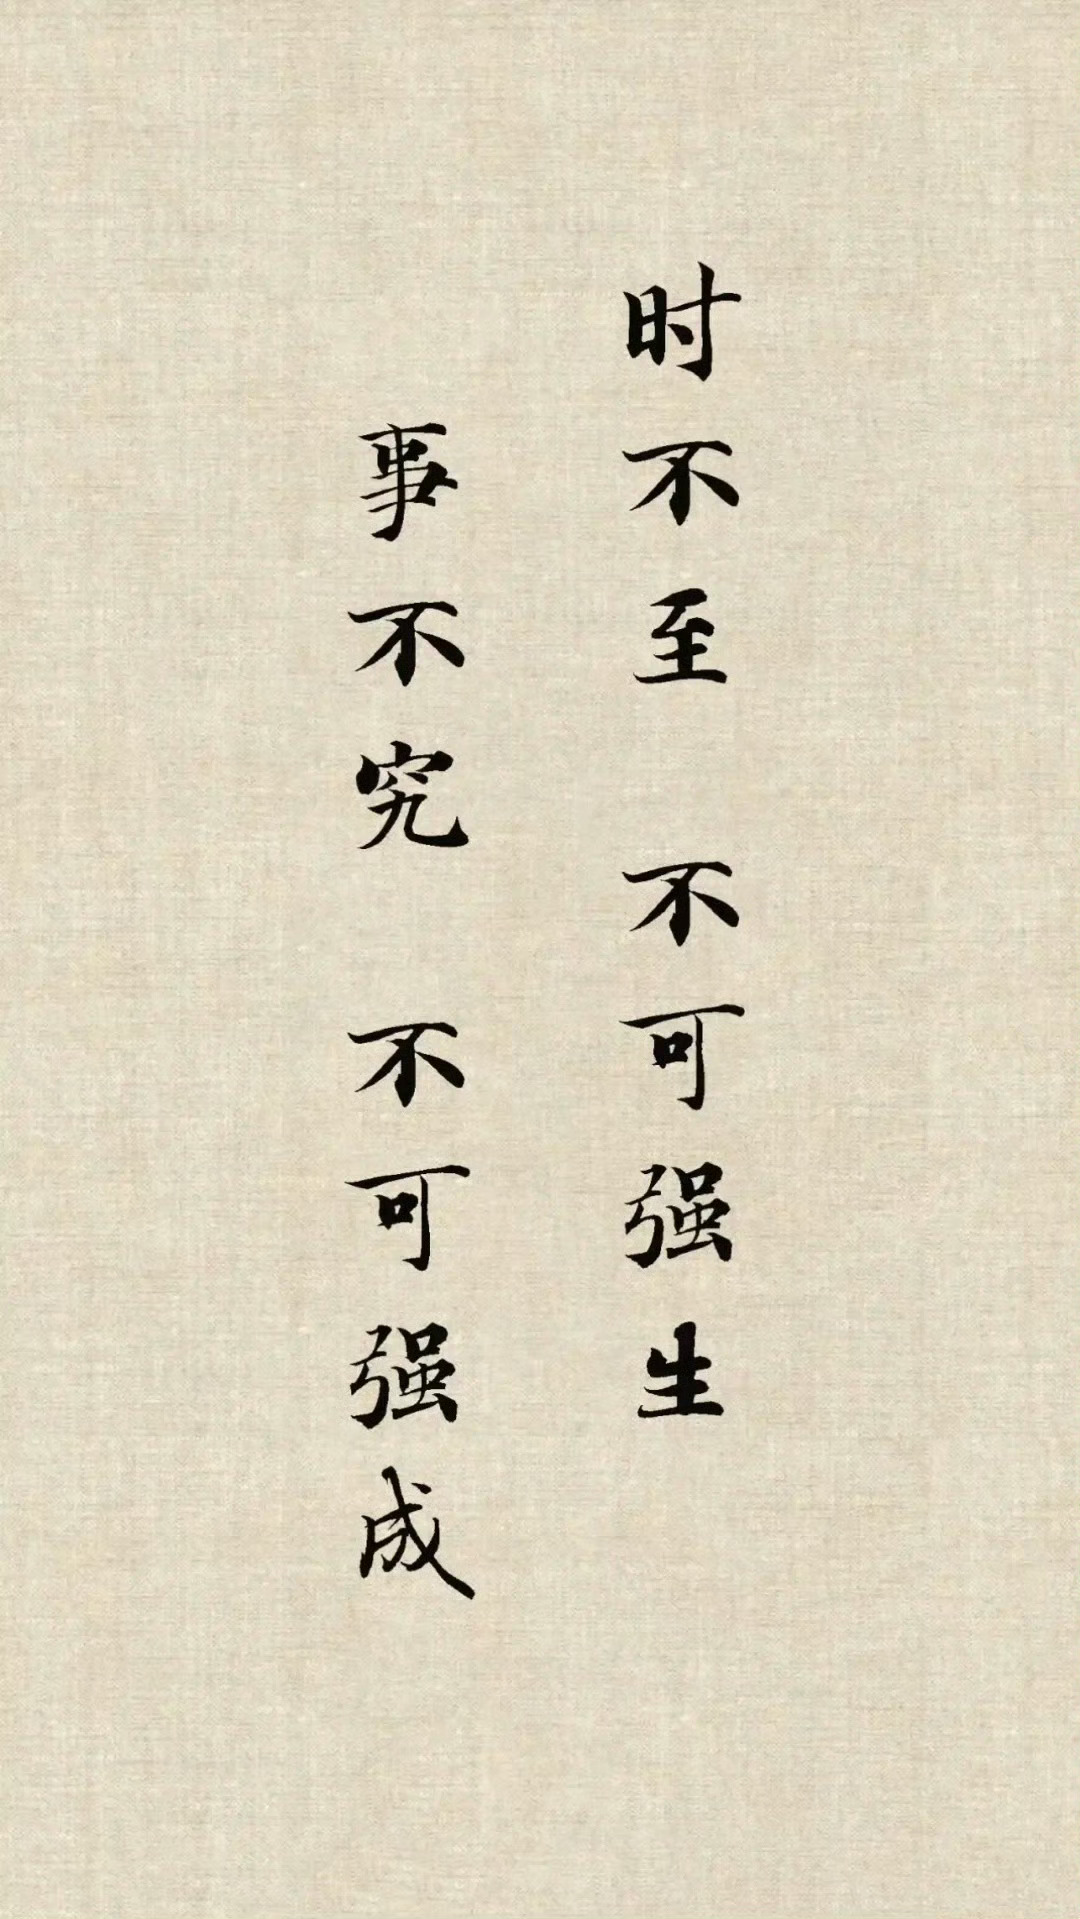 时不至 不可强生
事不究 不可强成